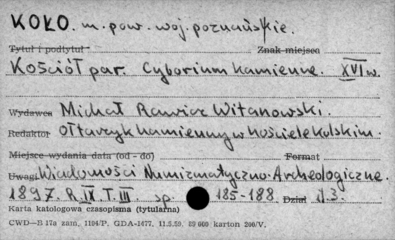 KOŁO. m. pow. woj. poznańskie.
Tytuł i podtytuł Znak miejsca
Kościół par. Cyborium kamienne. XVI w.
Wydawca Michał Rawicz Witanowski.
Redaktor Ołtarzyk kamienny w kościele kolskim.
Miejsce wydania data (od - do) Format
Uwagi Wiadomości Numizmatyczno-Archeologiczne.
1897. R. IX. T. III. sp. 185-188. Dział N.3.
Karta katologowa czasopisma (tytularna)
CWD—B 17a zam. 1104/P. GDA-1677. 11.5.59. 89 000 karton 200/V.